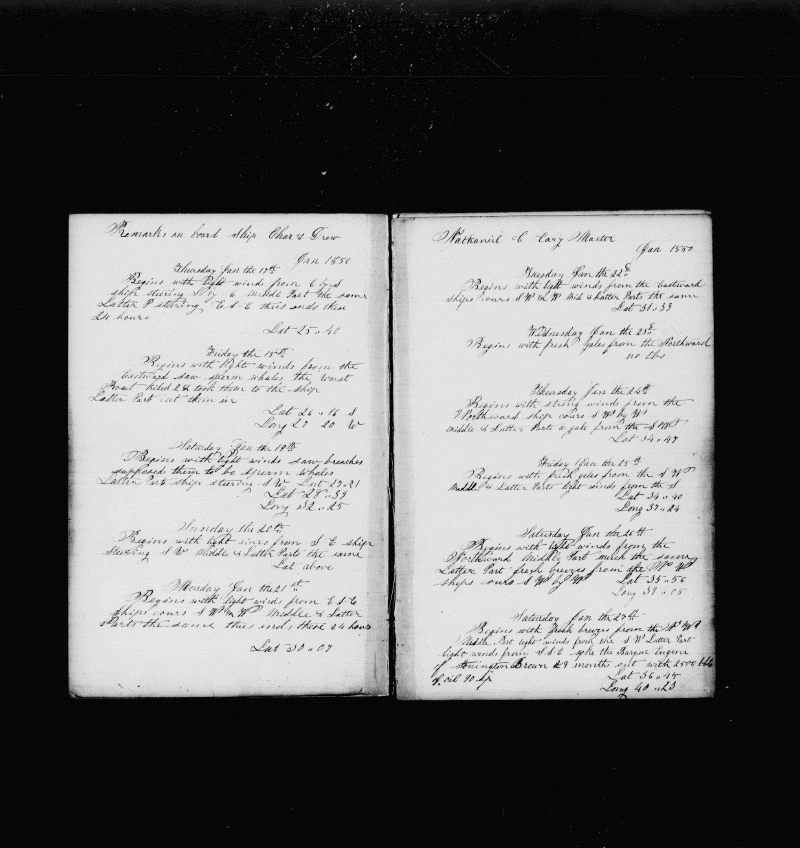 Remarks on board Ship Chars Drew
Jan 1850
Thursday Jan the 17th
Begins with light winds from E by S
ship steering S by E Middle Part the same
Latter P steering E S E thus ends these
24 hours
Lat 25 " 40
Friday the 18th
Begins with light winds from the
Eastward saw sperm whales the Waist
Boat kiled 2 & took them to the ship
Latter Part cut them in
Lat 26 " 16 S
Long 27 20 W
Saturday Jan the 19th
Begins with light winds saw breaches
supposed them to be sperm whales
Latter Part ship steering S W
Lat 28 " 39
Long 32 " 25
Sunday the 20th
Begins with light aires from S E ship
steering S W Middle & Latter Parts the same
Lat above
Monday Jan the 21st
Begins with light winds from E S E
ships cours S W Middle & Latter
Parts the same thus ends these 24 hours
Lat 30 " 07
Nathaniel C Cary Master
Jan 1850
Tuesday Jan the 22d
Begins with light winds from the Eastward
Ships cours S W Mid & Latter Parts the same
Lat 31 " 39
Wednesday Jan the 23d
Begins with fresh gales from the Northward
no Obs
Thursday Jan the 24th
Begins with strong winds from the
Northward ship cours S W by W
Middle & Latter Parts a gale from the S W
Lat 34 " 47
Friday Jan the 25th
Begins with fresh gales from the S W
Middle & Latter Parts light winds from the S
Lat 34 " 40
Long 37 " 24
Saturday Jan the 26th
Begins with light winds from the
Northward Middle Part much the same
Latter Part fresh breezes from the
ships cours S W by W Lat 35 " 56
Long 39 " 05
Saturday Jan the 27th
Begins with fresh brezes from the
Middle Part light winds from the S W Latter Part
light winds from S S E spoke the Barque Eugene
of Stonington Brown 29 month out with 2500 bbls
of oil 90 sp Lat 36 " 45
Long 40 " 23